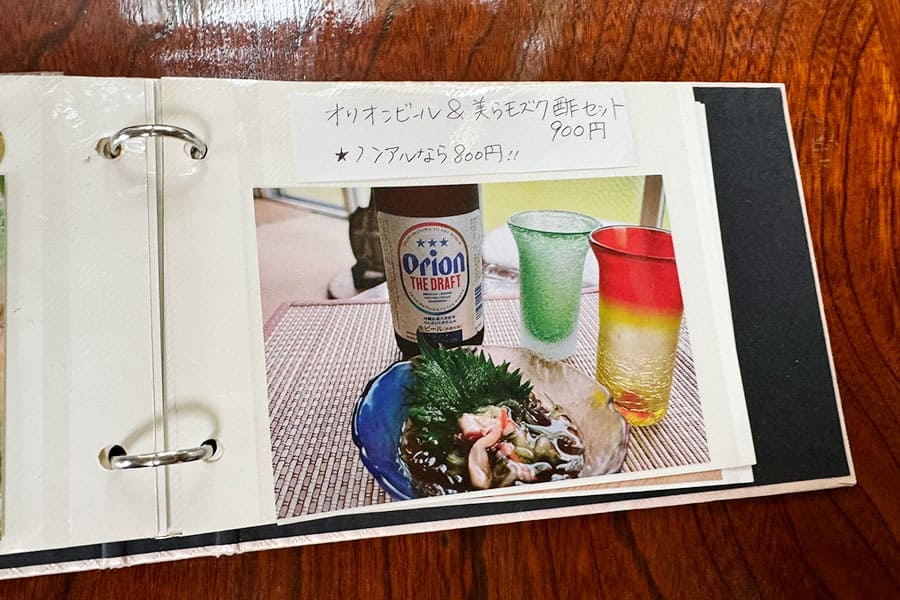 オリオンビール&美らモズク酢セット
900円
★ノンアルなら800円!!
Orion
THE DRAFT